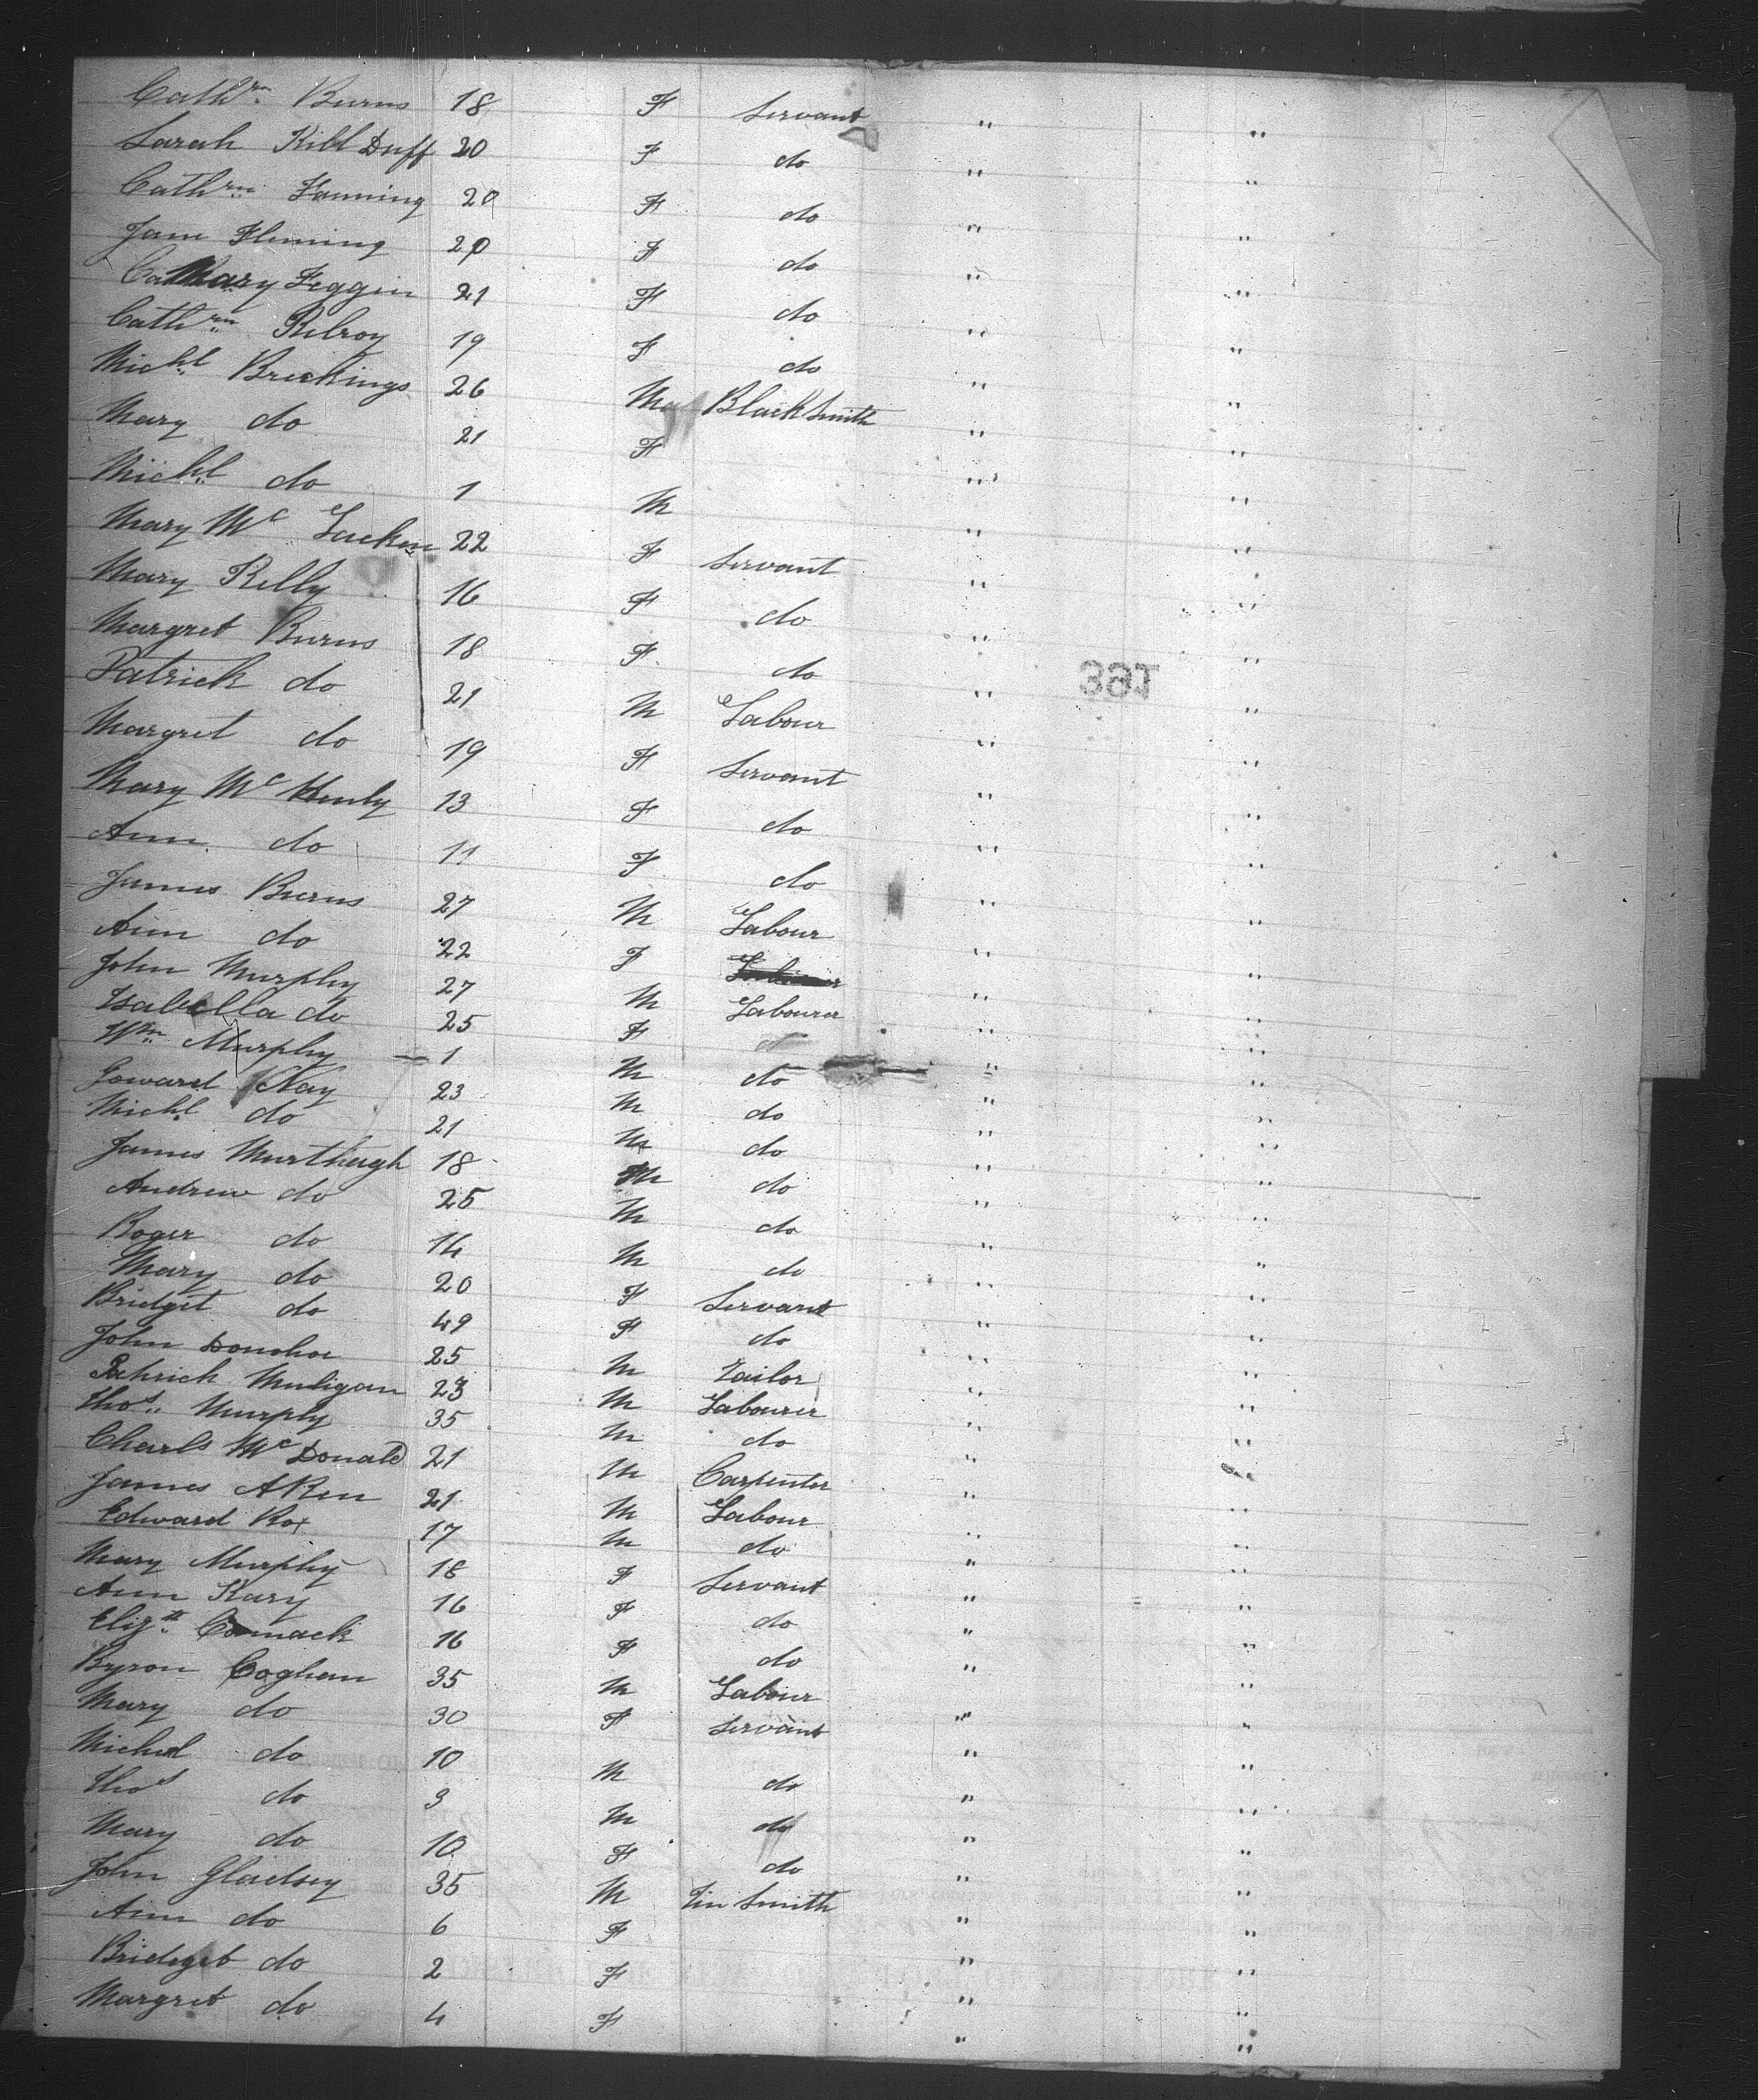 Cathrn Burns 18 F Servant " "
Sarah Kill Duff 20 F do " "
Cathrn Fanning 20 F do " "
Jane Fleming 20 F do " "
Mary Feggin 21 F do " "
Cathrn Kilroy 19 F do " "
Michl Breckings 26 M Black Smith " "
Mary do 21 F " "
Michl do 1 M " "
Mary Mc 22 F Servant " "
Mary Kelly 16 F do " "
Margret Burns 18 F do " "
Patrick do 21 M Labour " "
Margret do 19 F Servant " "
Mary Mc Henly 13 F do " "
Ann do 11 F do " "
James Burns 27 M Labour " "
Ann do 22 F " "
John Murphy 27 M Labourer " "
Isabella do 25 F " "
Wm Murphy 1 M do " "
Edward Nay 23 M do " "
Michl do 21 M do " "
James Murthugh 18 M do " "
Andrew do 25 M do " "
Roger do 14 M do " "
Mary do 20 F Servant " "
Bridget do 49 F do " "
John Donohoe 25 M Tailor " "
Patrick Muligan 23 M Labourer " "
Thos Murphy 35 M do " "
Charls Mc Donald 21 M Carpenter " "
James Aken 21 M Labour " "
Edward Rox 17 M do " "
Mary Murphy 18 F Servant " "
Ann Kary 16 F do " "
Elizth Cormack 16 F do " "
Byron Coghan 35 M Labour " "
Mary do 30 F Servant " "
Michael do 10 M do " "
Thos do 3 M do " "
Mary do 10 F do " "
John Gladsey 35 M Tin Smith " "
Ann do 6 F " "
Bridget do 2 F " "
Margret do 4 F " "